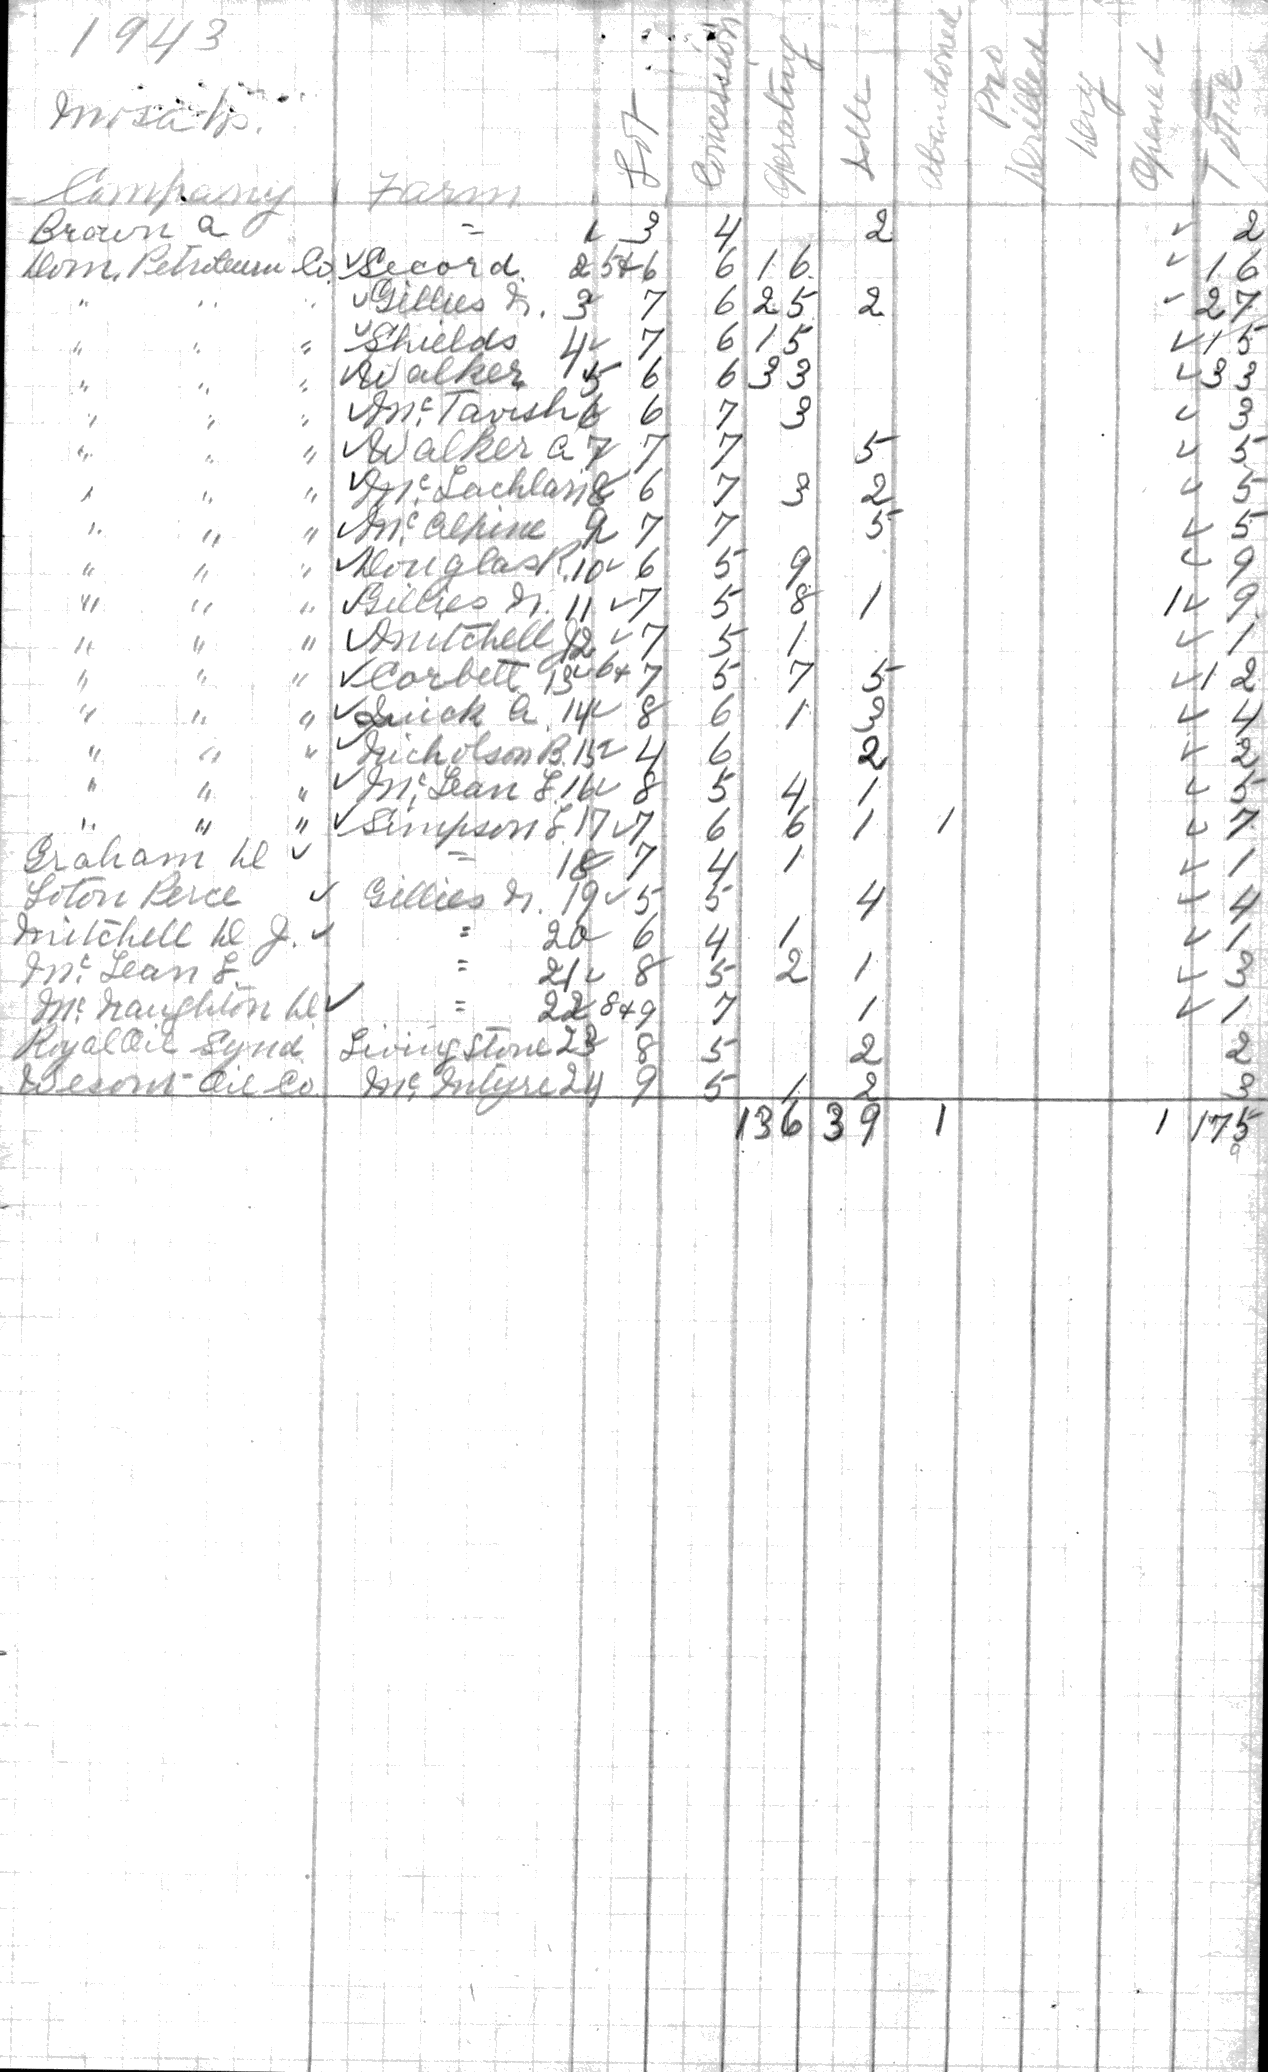 1943
Mosa Tp.
Company Farm Lot Concession Operating Idle Abandoned Pro Drilled Dry Opened Total
Brown A " 1 ✓ 3 4 2 ✓ 2
Dom. Petroleum Co. ✓ Secord 2 5+6 6 16 ✓ 16
" " " ✓ Gillies N. 3 7 6 25 2 ✓ 27
" " " ✓ Shields 4 ✓ 7 6 15 ✓ 15
" " " ✓ Walker 5 6 6 33 ✓ 33
" " " ✓ McTavish 6 6 7 3 ✓ 3
" " " ✓ Walker A 7 7 7 5 ✓ 5
" " " ✓ McLachlan 8 6 7 3 2 ✓ 5
" " " ✓ McAlpine 9 7 7 5 ✓ 5
" " " ✓ Douglas R. 10 ✓ 6 5 9 ✓ 9
" " " ✓ Gillies N. 11 ✓ 7 5 8 1 1 ✓ 9
" " " ✓ Mitchell J 12 ✓ 7 5 1 ✓ 1
" " " ✓ Corbett 13 ✓ 6+7 5 7 5 ✓ 12
" " " ✓ Quick A. 14 ✓ 8 6 1 3 ✓ 4
" " " ✓ Nicholson B. 15 ✓ 4 6 2 ✓ 2
" " " ✓ McLean F. 16 ✓ 8 5 4 1 ✓ 5
" " " ✓ Simpson F. 17 ✓ 7 6 6 1 1 ✓ 7
Graham D ✓ " 18 7 4 1 ✓ 1
Loton Perce ✓ Gillies N. 19 ✓ 5 5 4 ✓ 4
Mitchell D J. ✓ " 20 6 4 1 ✓ 1
McLean F. " 21 ✓ 8 5 2 1 ✓ 3
McNaughton D ✓ " 22 8+9 7 1 ✓ 1
Royal Oil Synd. Livingstone 23 8 5 2 2
Oil Co. McIntyre 24 9 5 1 2 3
136 39 1 1 175